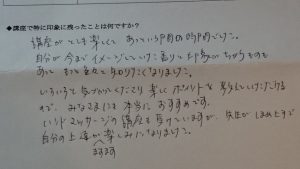 ◆講座で特に印象に残ったことは何ですか？
講座がとても楽しくて あっという間の時間でした。
自分が今までイメージしていた香りと印象がちがうものも
あって もっと色々と知りたくなりました。
いろいろと気づかってくださり 楽しく ポイントも 教えていただける
ので、みなさまにも本当に おすすめです。
マッサージの講座も 受けていますが、先生が
自分の上達が楽しみになりました。
ますます